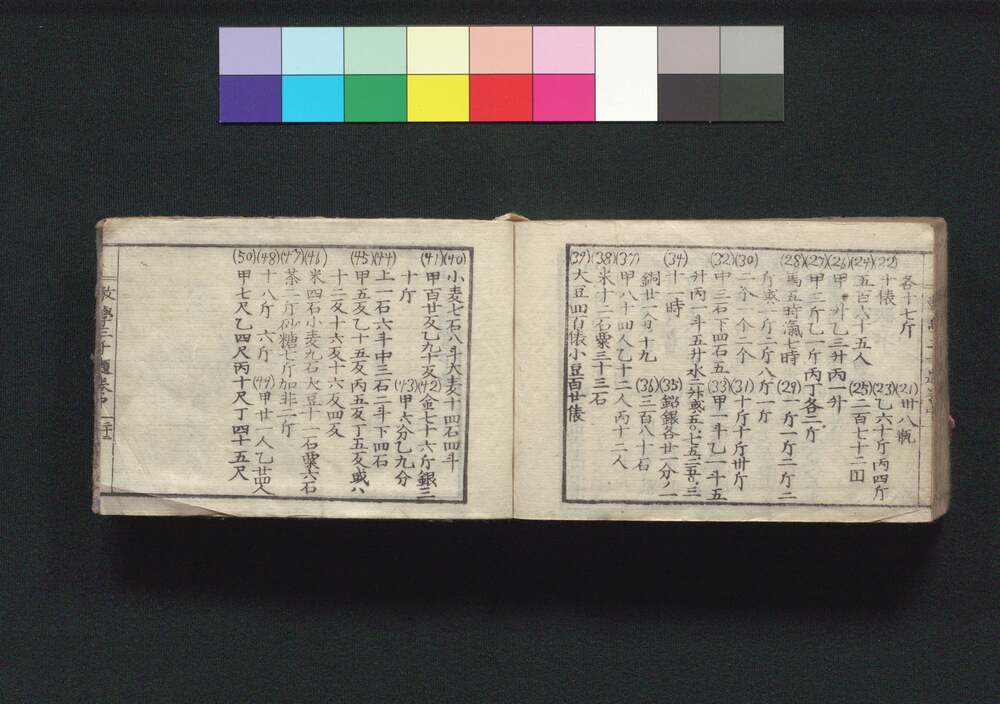 各十七斤 (21)卅八瓶
(22)十俵 (23)乙六十斤丙四斤
(24)五百六十五人 (25)二百七十二田
(26)甲一升乙三升丙一升
(27)甲三斤乙一斤丙丁各二斤
(28)馬五時滊七時 (29)一斤一斤二斤二
斤或一斤二斤八斤一斤
(30)二个一个二个 (31)十斤十斤卅斤
(32)中三石下四石五 (33)甲一斗乙一斗五
升丙一斗五升水二升或五〇七五二五〇三
(34)十一時 (35)鉛銀各廿一分ノ一
銅廿一分ノ十九 (36)三百八十石
(37)甲八十四人乙十二人丙十二人
(38)米十二石粟三十三石
(39)大豆四百俵小豆百廿俵
(40)小麦七石八斗大麦十四石四斗
(41)甲百廿反乙九十反 (42)金七十六斤銀三
十斤 (43)甲六分乙九分
(44)上一石六斗中三石二斗下四石
(45)甲五反乙十五反丙五反丁五反或八
十二反十六反十六反四反
(46)米四石小麦九石大豆十一石粟六石
(47)茶二斤砂糖七斤加非二斤
(48)十八斤 六斤 (49)甲廿一人乙廿四人
(50)甲七尺乙四尺丙十尺丁四十五尺
数學三千題卷中